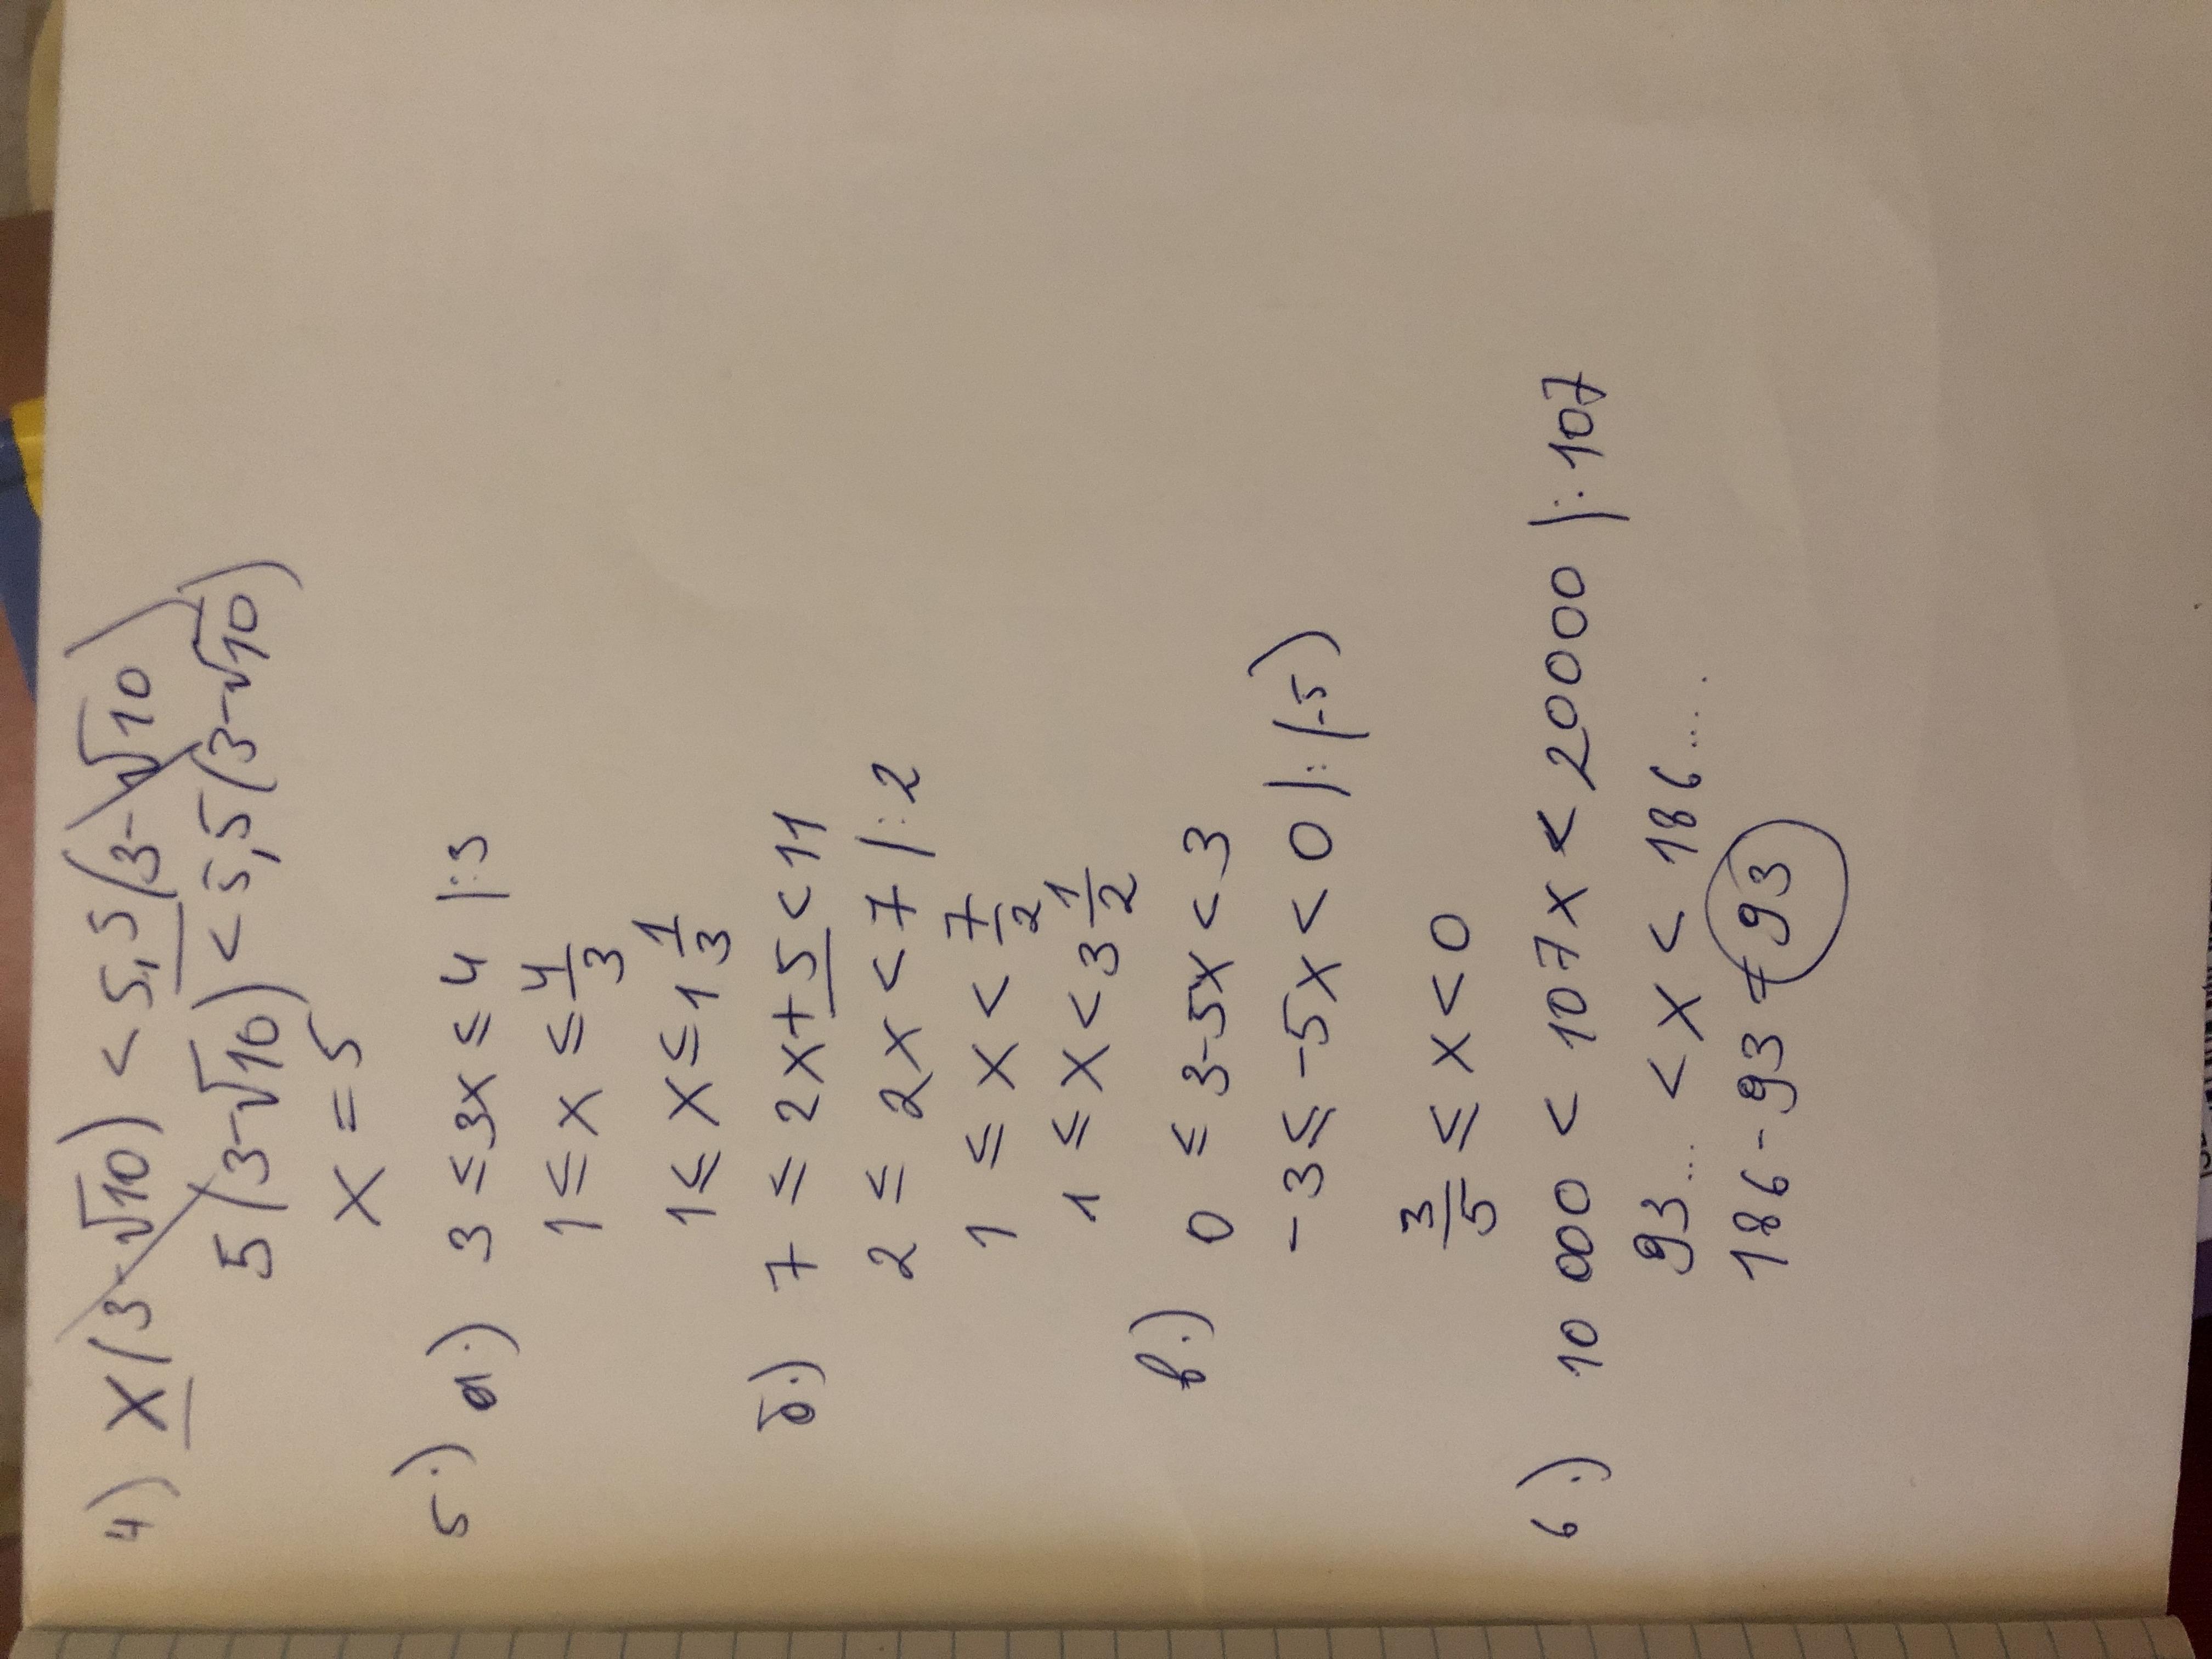 4) x(3-√10) < 5,5(3-√10)
5(3-√10) < 5,5(3-√10)
x = 5
5.) а.) 3 ≤ 3x ≤ 4 |:3
1 ≤ x ≤ 4/3
1 ≤ x ≤ 1 1/3
б.) 7 ≤ 2x+5 < 11
2 ≤ 2x < 7 |:2
1 ≤ x < 7/2
1 ≤ x < 3 1/2
в.) 0 ≤ 3-5x < 3
-3 ≤ -5x < 0 |:(-5)
3/5 ≤ x < 0
6.) 10 000 < 107x < 20000 |:107
93... < x < 186....
186-93 = 93